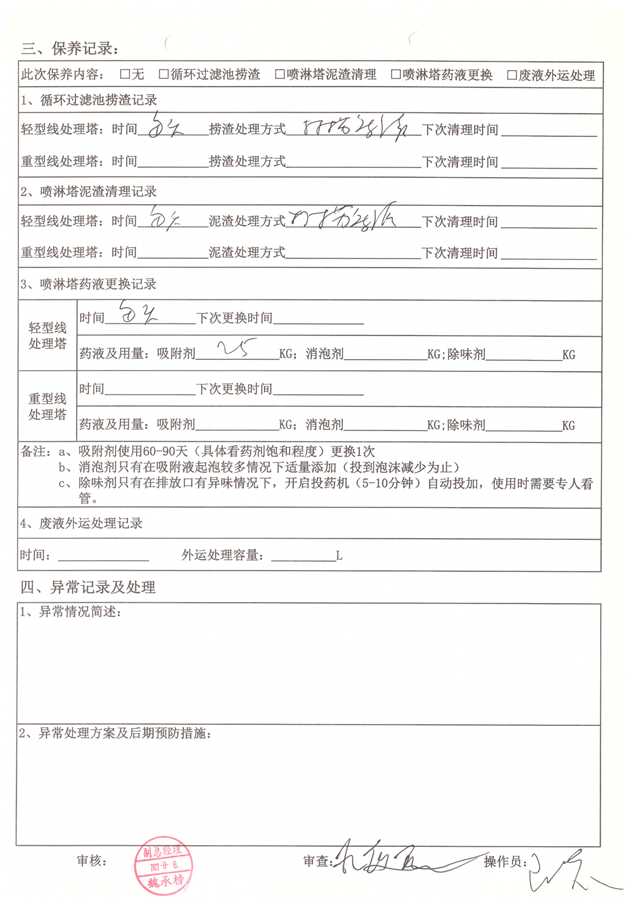 三、保养记录：
此次保养内容： □无 □循环过滤池捞渣 □喷淋塔泥渣清理 □喷淋塔药液更换 □废液外运处理
1、循环过滤池捞渣记录
轻型线处理塔：时间 每天 捞渣处理方式 下次清理时间
重型线处理塔：时间 捞渣处理方式 下次清理时间
2、喷淋塔泥渣清理记录
轻型线处理塔：时间 每天 泥渣处理方式 下次清理时间
重型线处理塔：时间 泥渣处理方式 下次清理时间
3、喷淋塔药液更换记录
轻型线
处理塔
时间 每天 下次更换时间
药液及用量：吸附剂 25 KG；消泡剂 KG;除味剂 KG
重型线
处理塔
时间 下次更换时间
药液及用量：吸附剂 KG；消泡剂 KG;除味剂 KG
备注：a、吸附剂使用60-90天（具体看药剂饱和程度）更换1次
b、消泡剂只有在吸附液起泡较多情况下适量添加（投到泡沫减少为止）
c、除味剂只有在排放口有异味情况下，开启投药机（5-10分钟）自动投加，使用时需要专人看
管。
4、废液外运处理记录
时间： 外运处理容量： L
四、异常记录及处理
1、异常情况简述：
2、异常处理方案及后期预防措施：
审核： 审查： 操作员：
副总经理
魏承榜